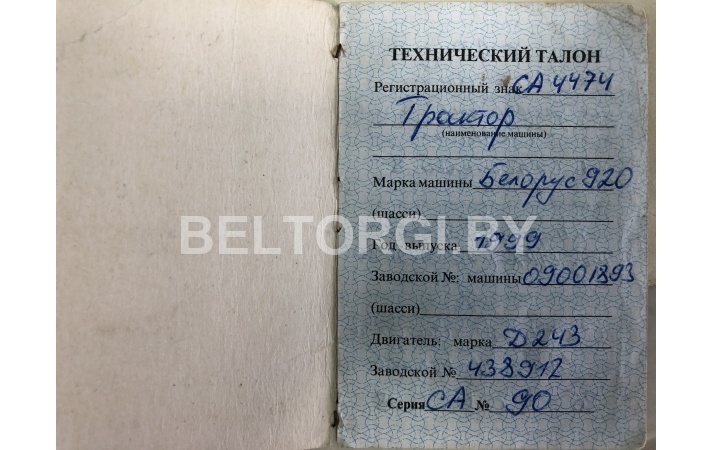 ТЕХНИЧЕСКИЙ ТАЛОН
Регистрационный знак СА 4474
Трактор
(наименование машины)
Марка машины Беларус 920
(шасси)
BELTORGI.BY
Год выпуска 1999
Заводской №: машины 09001893
(шасси)
Двигатель: марка Д243
Заводской № 438912
Серия СА № 90